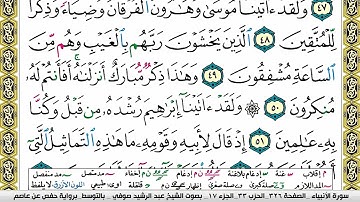 ٤٧ وَلَقَدْ ءَاتَيْنَا مُوسَىٰ وَهَٰرُونَ ٱلْفُرْقَانَ وَضِيَآءً وَذِكْرًا
لِّلْمُتَّقِينَ ٤٨ ٱلَّذِينَ يَخْشَوْنَ رَبَّهُم بِٱلْغَيْبِ وَهُم مِّنَ
ٱلسَّاعَةِ مُشْفِقُونَ ٤٩ وَهَٰذَا ذِكْرٌ مُّبَارَكٌ أَنزَلْنَٰهُ أَفَأَنتُمْ لَهُۥ
مُنكِرُونَ ٥٠ وَلَقَدْ ءَاتَيْنَآ إِبْرَٰهِيمَ رُشْدَهُۥ مِن قَبْلُ وَكُنَّا
بِهِۦ عَٰلِمِينَ ٥١ إِذْ قَالَ لِأَبِيهِ وَقَوْمِهِۦ مَا هَٰذِهِ ٱلتَّمَاثِيلُ ٱلَّتِىٓ
سورة الأنبياء. الصفحة ٣٢٦ الحزب ٣٣ الجزء ١٧ بصوت الشيخ عبد الرشيد صوفي - بالتوسط برواية حفص عن عاصم